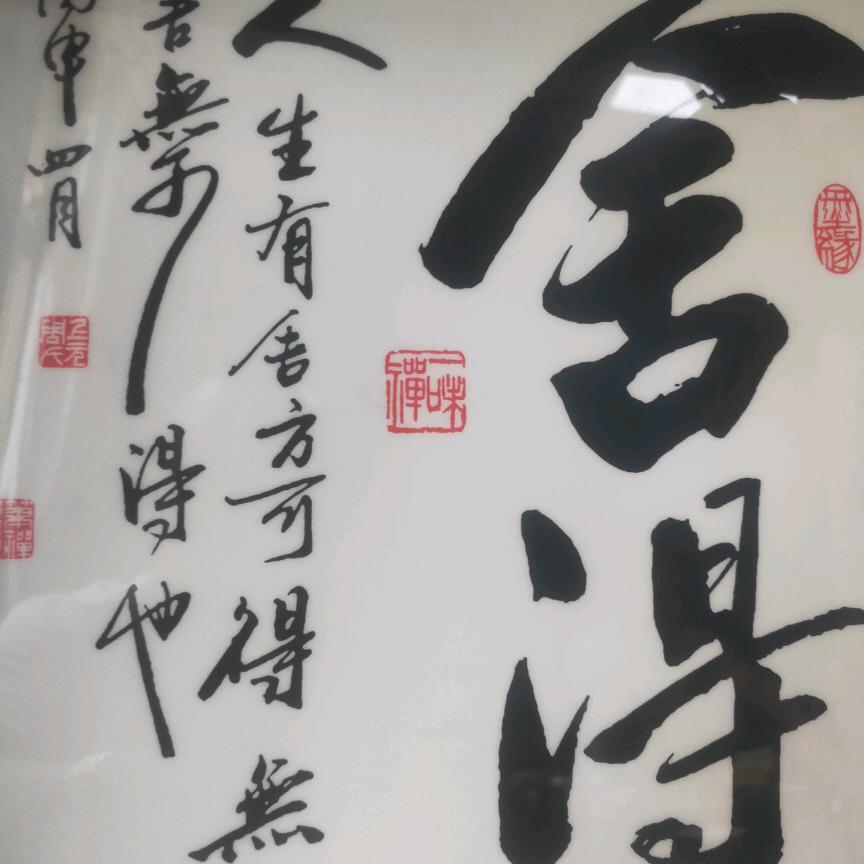 舍得
人生有舍方可得無
舍無所得也
丙申四月
一味禪